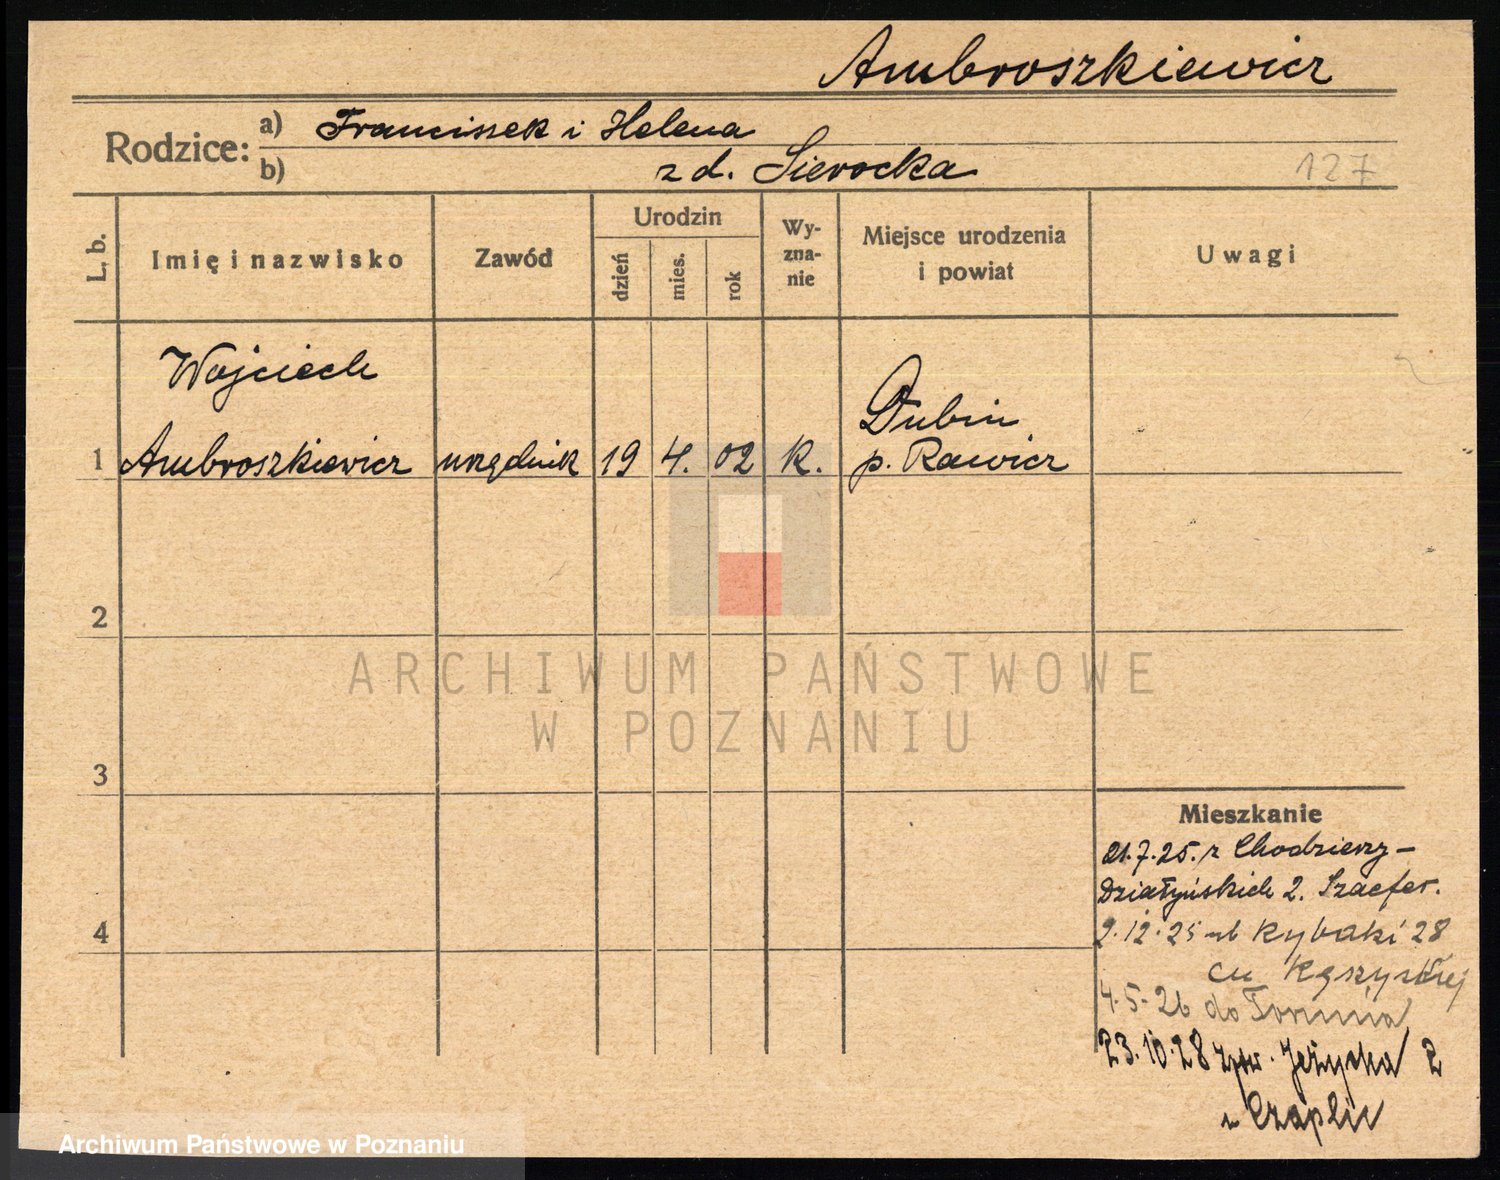 Ambroszkiewicz
Rodzice: a) Franciszek i Helena
b) z d. Sierocka
127
L. b.
Imię i nazwisko
Zawód
Urodzin
dzień
mies.
rok
Wy-
zna-
nie
Miejsce urodzenia
i powiat
Uwagi
Wojciech
1 Ambroszkiewicz urzędnik 19 4. 02 K.
Dubin
p. Rawicz
2
3
4
Mieszkanie
21.7.25. z Chodzieży –
Działyńskich 2. Szaefer.
2.12.25 Rybaki 28
4.5.26 do Torunia
23.10.28 Jeżycka 2
Czaplic
ARCHIWUM PAŃSTWOWE
W POZNANIU
Archiwum Państwowe w Poznaniu